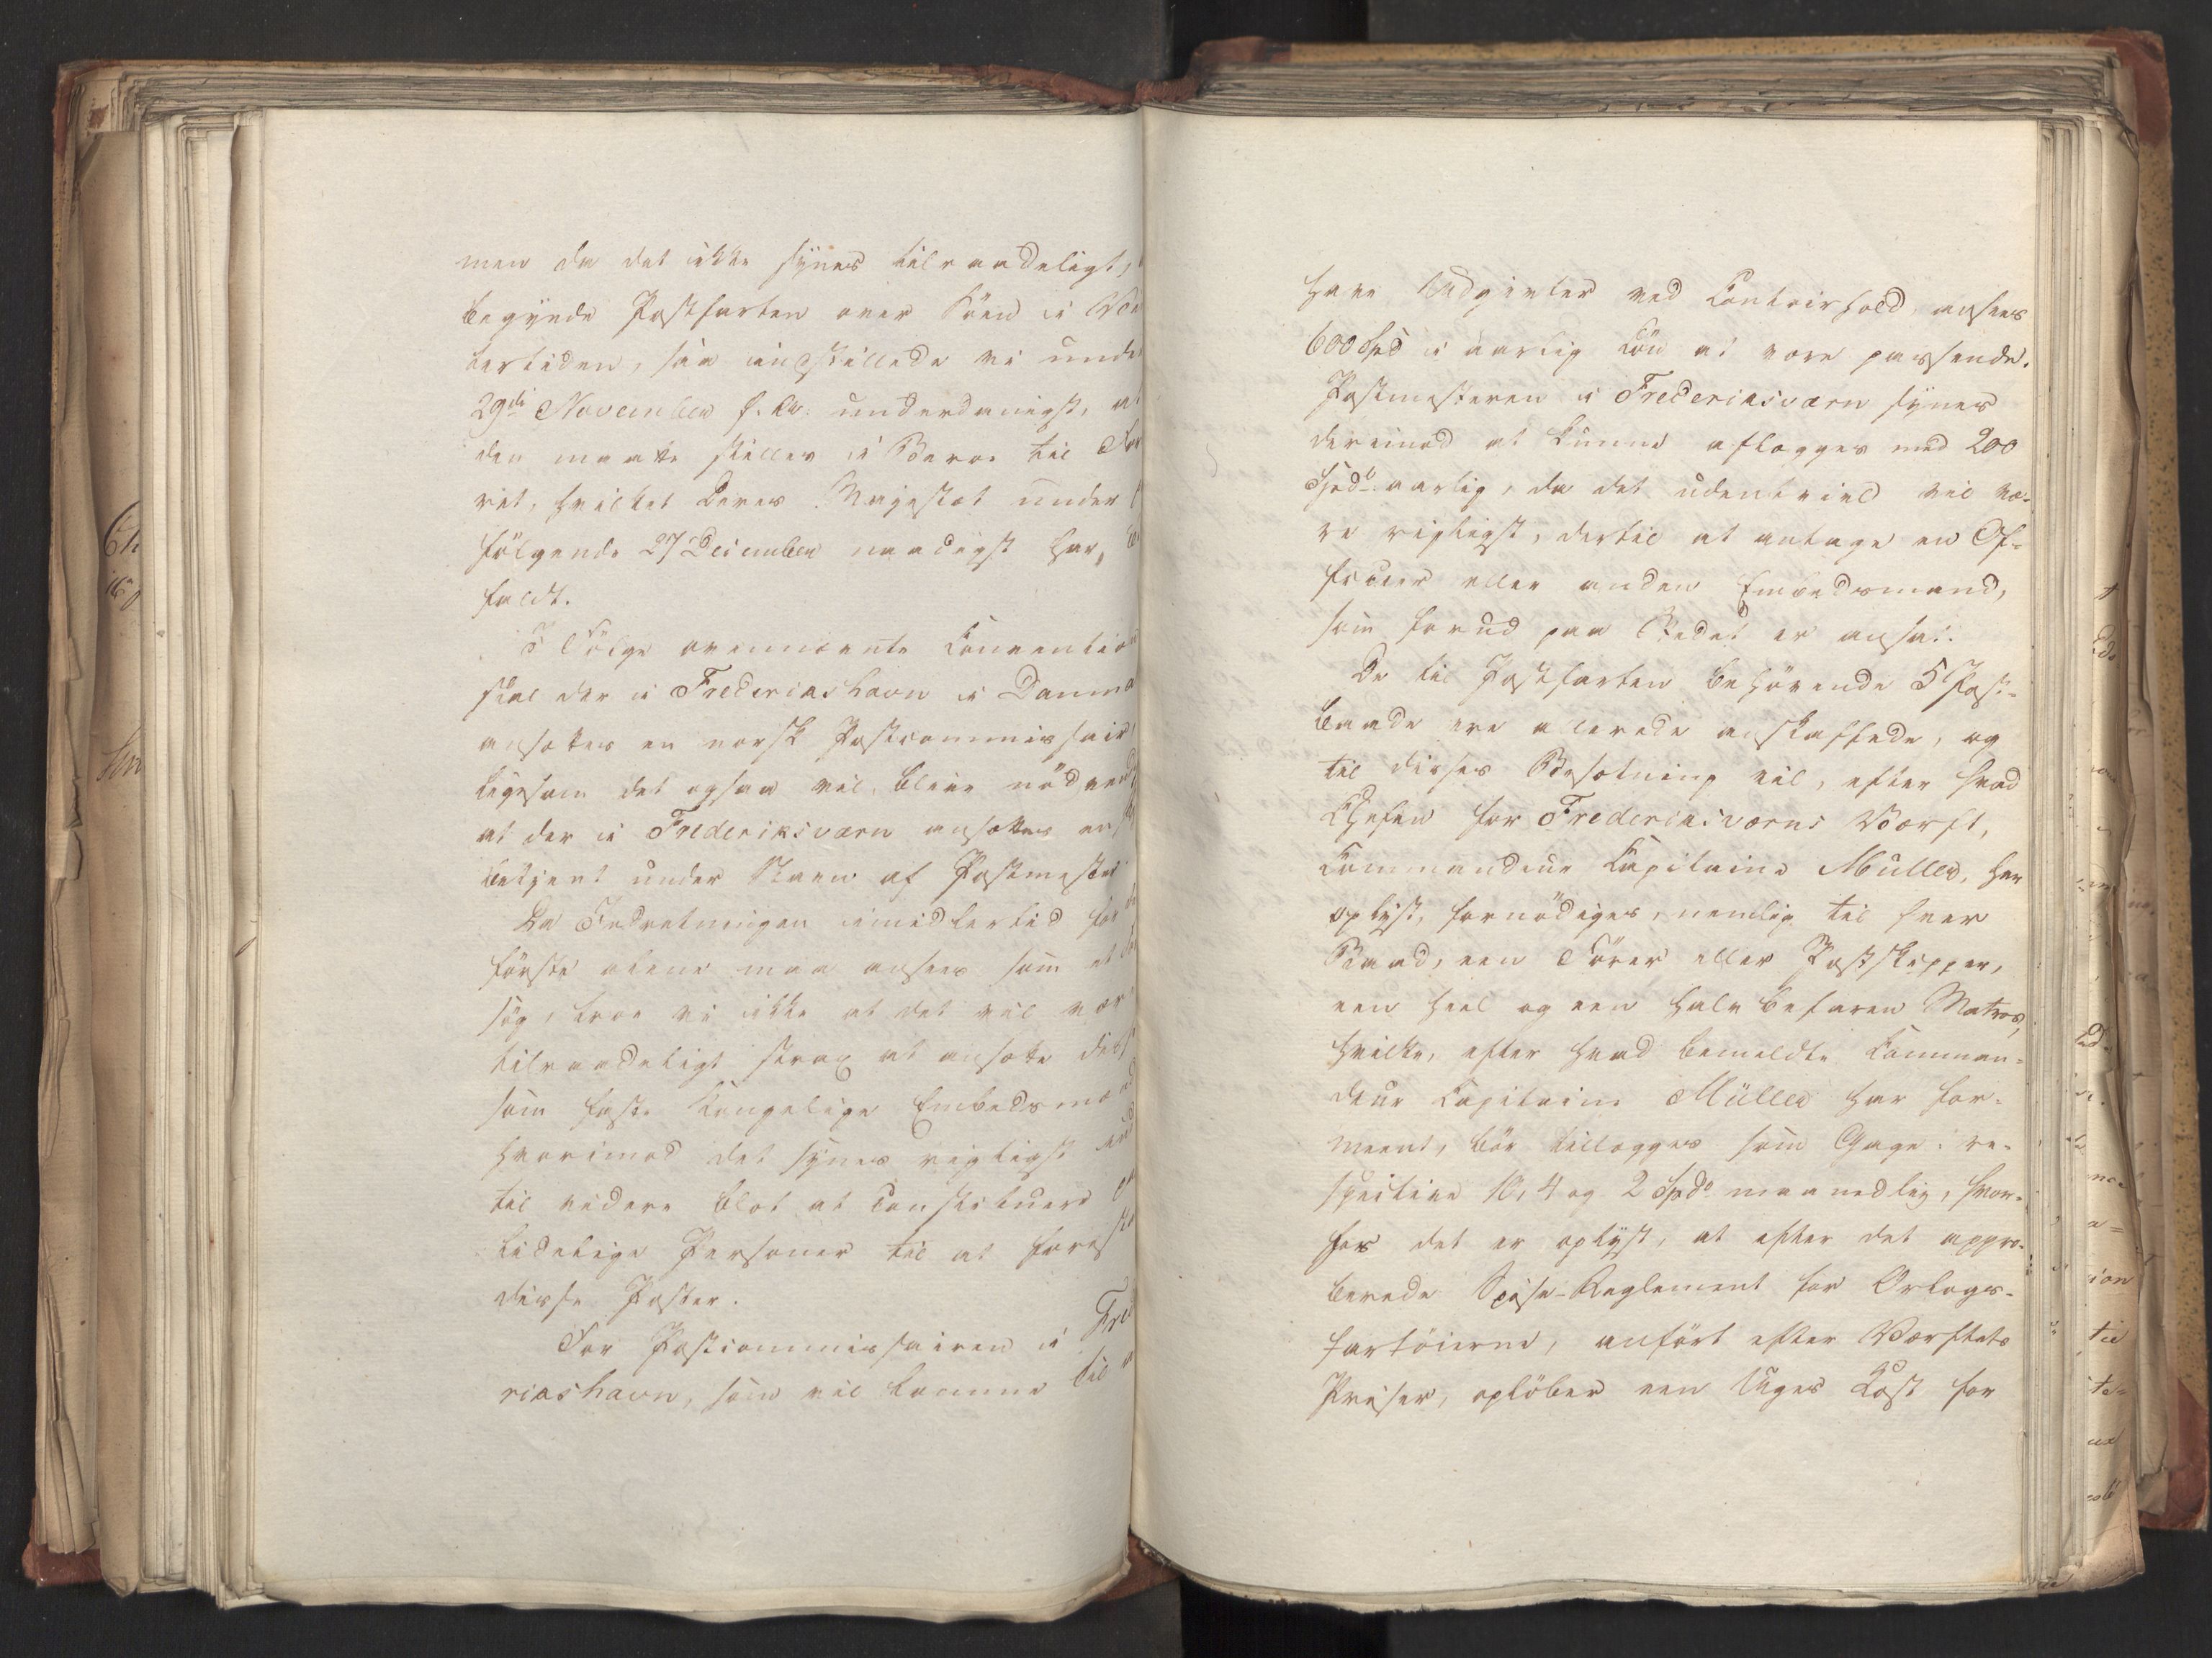 men da det ikke synes tilraadeligt,
begynde Postfarten over Söen i Vin
tertiden, saa indstillede vi unde
29de November f. A. underdanigst, at
den maatte stilles i Bero til For
ret, hvilket Deres Majestæt under
følgende 27 December naadigst har
faldt.
I Følge ovennævnte Convention
skal der i Fredericshavn i Danma
ansættes en norsk Postcommissair
ligesom det ogsaa vil blive nödvend
at der i Frederiksværn ansættes en
betjent under Navn af Postmester
Da Indretningen imidlertid for
förste alene maa ansees som et
søg, troe vi ikke at det vil vær
tilraadeligt strax at ansætte diss
som faste Kongelige Embedsmæ
hvorimod det synes rigtigst ind
til videre blot at Constituere
lidelige Personer til at forest
disse Poster.
For Postcommissairen i Fred
ricshavn, som vil komme til
have Udgivter ved Contoirhold, ansees
600 Spd i aarlig Lön at være passende.
Postmesteren i Fredericsværn synes
derimod at kunne aflægges med 200
Spdr. aarlig, da det udentvivl vil væ-
re rigtigst, dertil at antage en Of-
ficier eller anden Embedsmand,
som forud paa Stedet er ansat.
De til Postfarten behövende 5 Post-
baade ere allerede anskaffede, og
til disses Besætning vil, efter hvad
Chefen for Fredericsværns Værft,
Commandeur Capitaine Müller, har
oplyst, fornödiges, nemlig til hver
Baad, een Förer eller Postskipper,
een heel og een halv befaren Matros,
hvilke, efter hvad bemeldte Comman-
deur Capitain Müller har for-
meent, bör tillægges som Gage: re-
spective 10, 4 og 2 Spdr maanedlig, hvor-
hos det er oplyst, at efter det appro-
berede Spise-Reglement for Orlogs-
fartöierne, anfört efter Værftets
Priser, oplöber een Uges Kost for